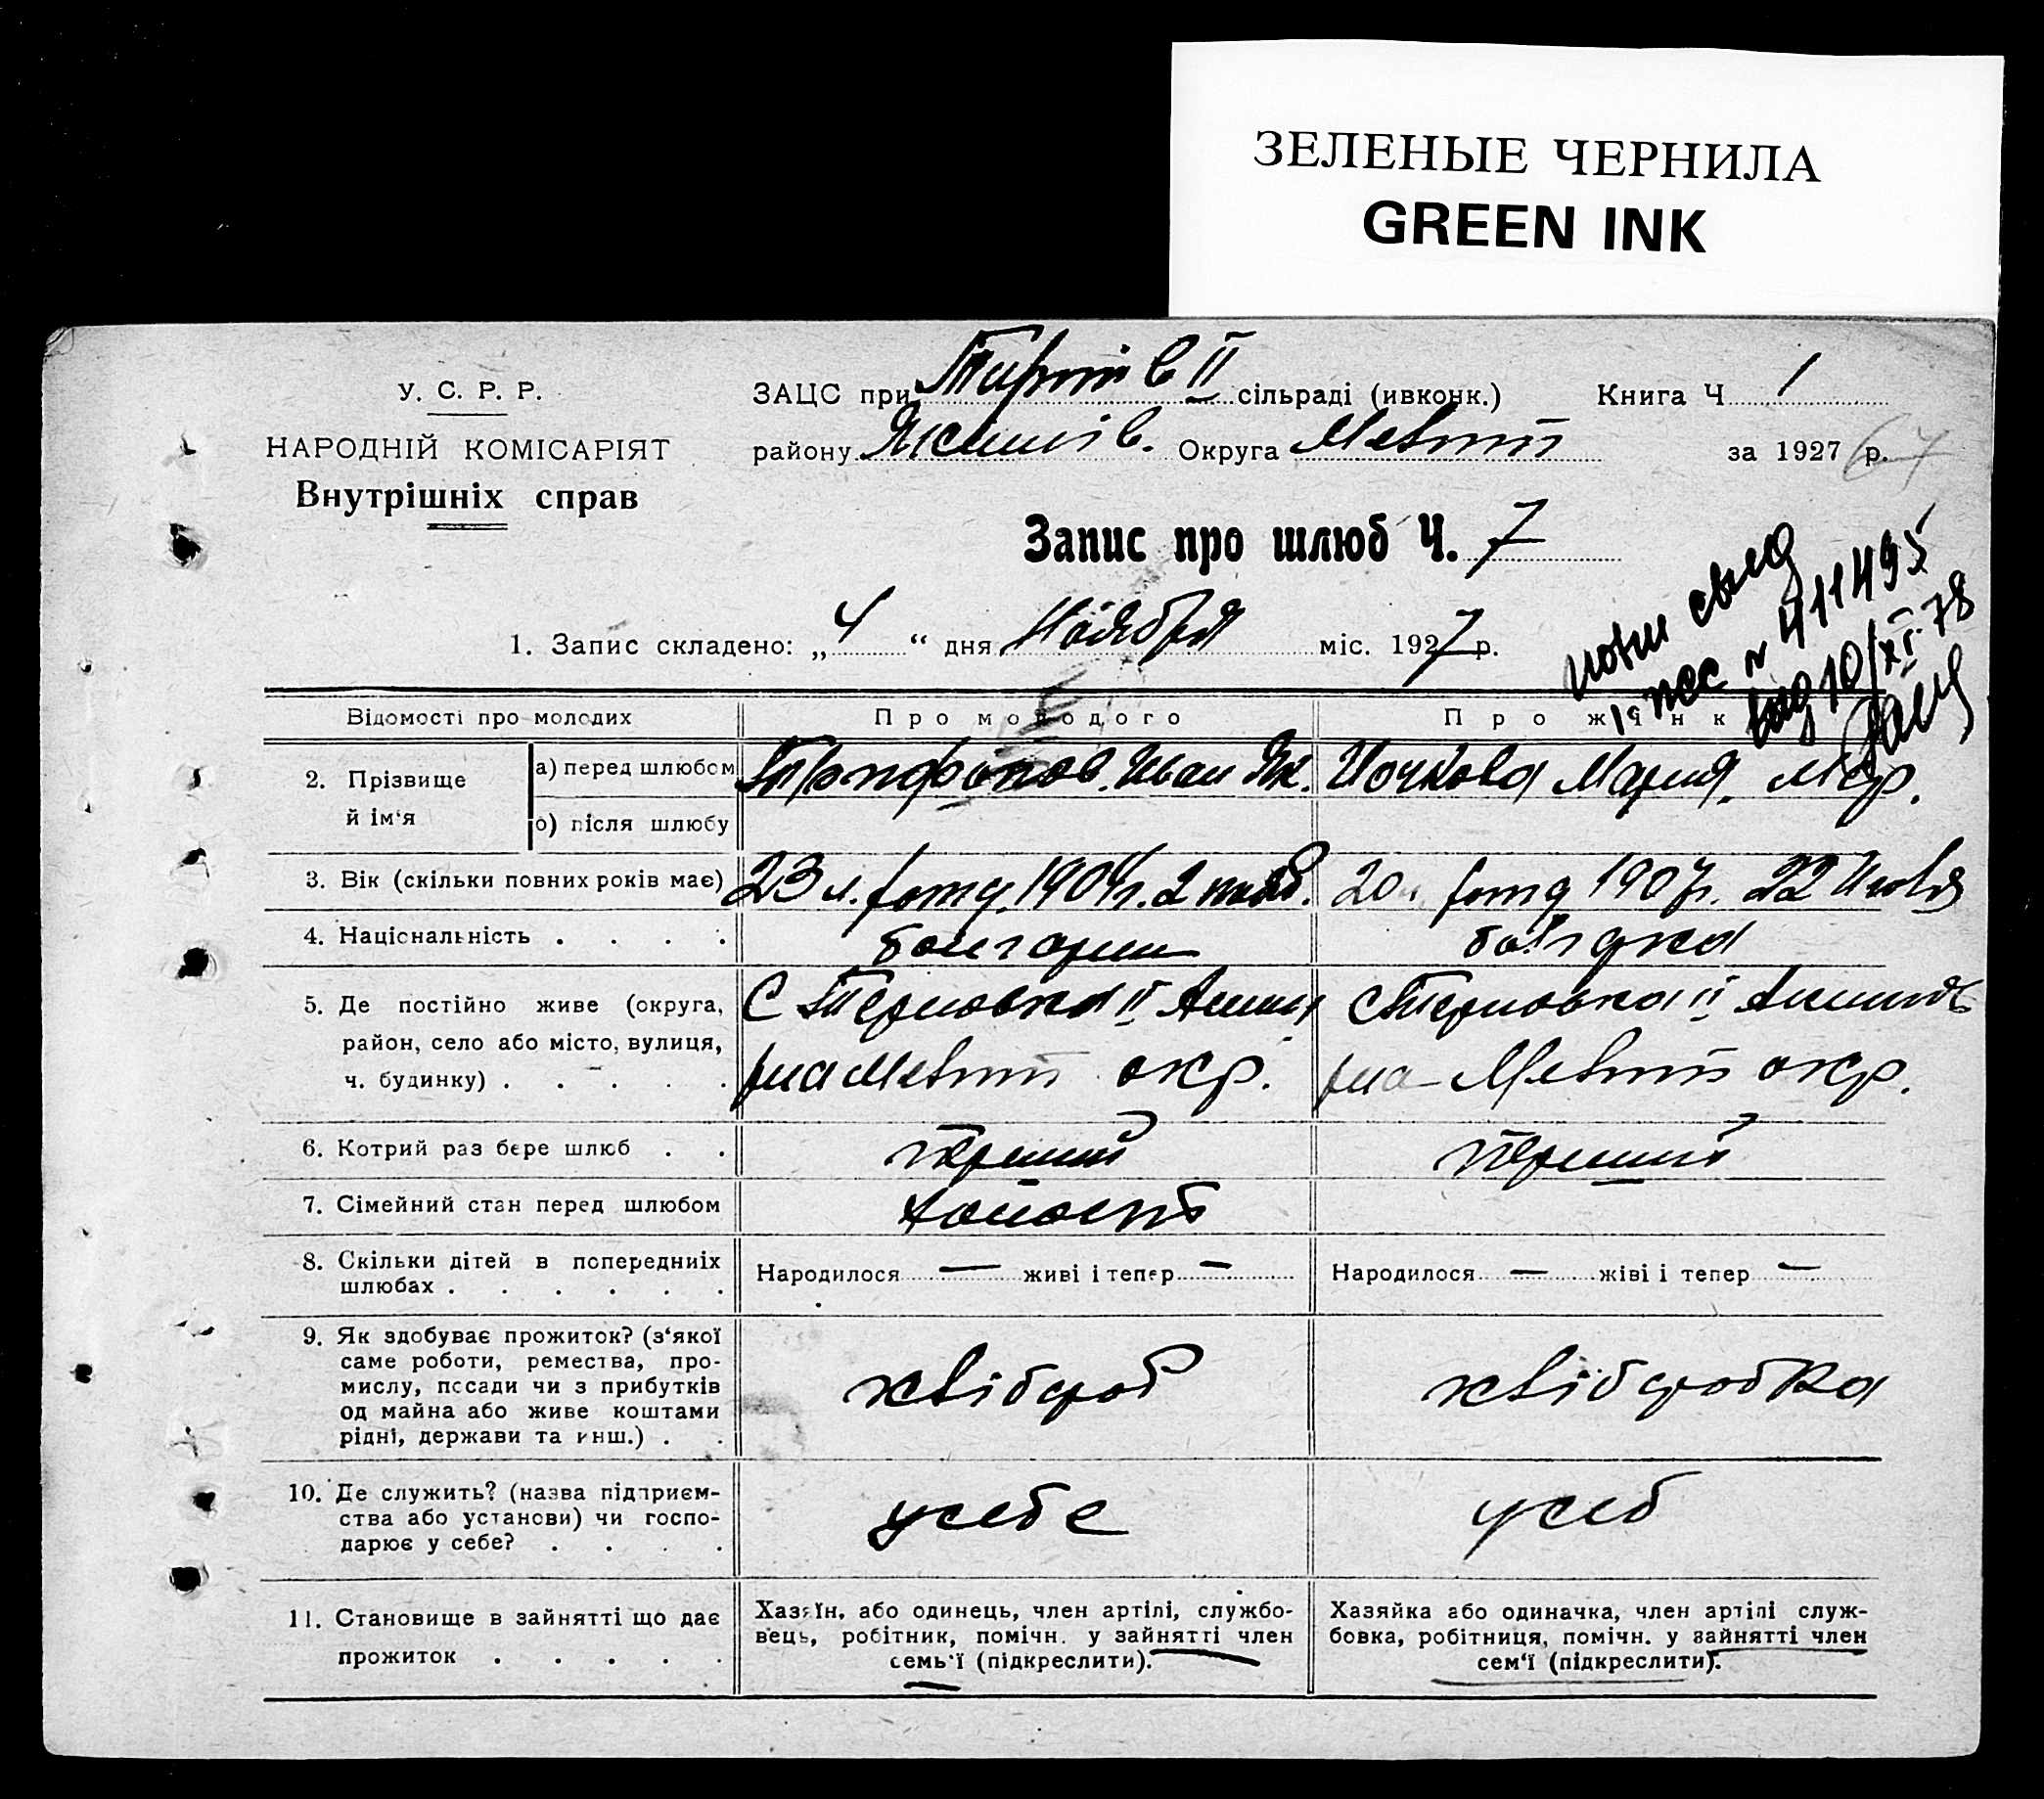 ЗЕЛЕНЫЕ ЧЕРНИЛА
GREEN INK
У. С. Р. Р.
НАРОДНІЙ КОМІСАРІЯТ
Внутрішніх справ
ЗАЦС при II сільраді (ивконк.) Книга Ч 1
району Округа за 1927 р.
Запис про шлюб Ч. 7
1. Запис складено: „ 4 “ дня Ноября міс. 1927 р.
Відомості про молодих
Про молодого
Про жінк
2. Прізвище й ім‘я
а) перед шлюбом
Иван Як.
Мария
о) після шлюбу
3. Вік (скільки повних років має)
23 л. 1904 г. 2
20 1907 г. 22
4. Національність . . . .
болгарин
болгарка
5. Де постійно живе (округа,
район, село або місто, вулиця,
ч. будинку) . . . . .
С Терновка II
окр.
С Терновка II
окр.
6. Котрий раз бере шлюб . .
перший
перший
7. Сімейний стан перед шлюбом
холост
8. Скільки дітей в попередниіх
шлюбах . . . . . .
Народилося — живі і тепер —
Народилося — жіві і тепер —
9. Як здобуває прожиток? (з‘якої
саме роботи, ремества, про-
мислу, посади чи з прибутків
од майна або живе коштами
рідні, держави та инш.) . .
хлібороб
хліборобка
10. Де служить? (назва підприєм-
ства або установи) чи госпо-
дарює у себе? . . . .
у себе
у себ
11. Становище в зайнятті що дає
прожиток . . . . .
Хазяїн, або одинець, член артілі, службо-
вець, робітник, помічн. у зайнятті член
семь‘ї (підкреслити).
Хазяйка або одиначка, член артілі служ-
бовка, робітниця, помічн. у зайнятті член
сем‘ї (підкреслити).